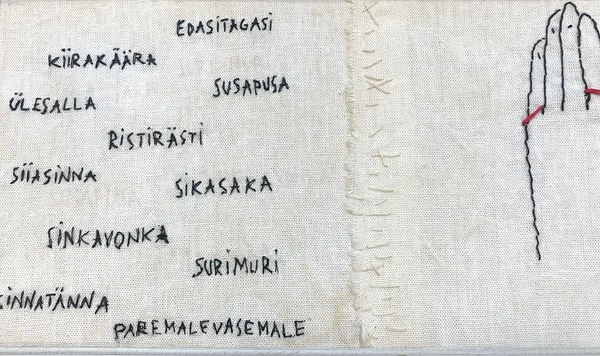 EDASITAGASI
KIIRAKÄÄRA
SUSAPUSA
ÜLESALLA
RISTIRÄSTI
SIIASINNA
SIKASAKA
SINKAVONKA
SURIMURI
INNATÄNNA
PAREMALEVASEMALE